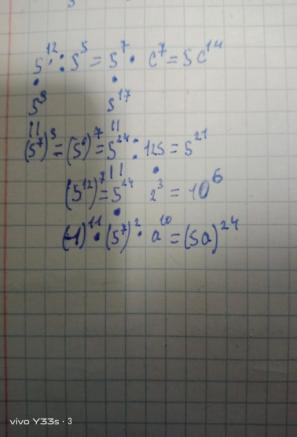 5¹² : 5⁵ = 5⁷ · c⁷ = 5c¹⁴
· ·
5⁹ 5¹⁷
|| ||
(5⁷)³ = (5⁶)⁷ = 5²⁴ : 125 = 5²¹
|| ·
(5¹²)⁷ = 5²⁴ 2³ = 10⁶
·
(-1)¹¹ · (5⁷)² · a¹⁰ = (5a)²⁴
vivo Y33s · 3